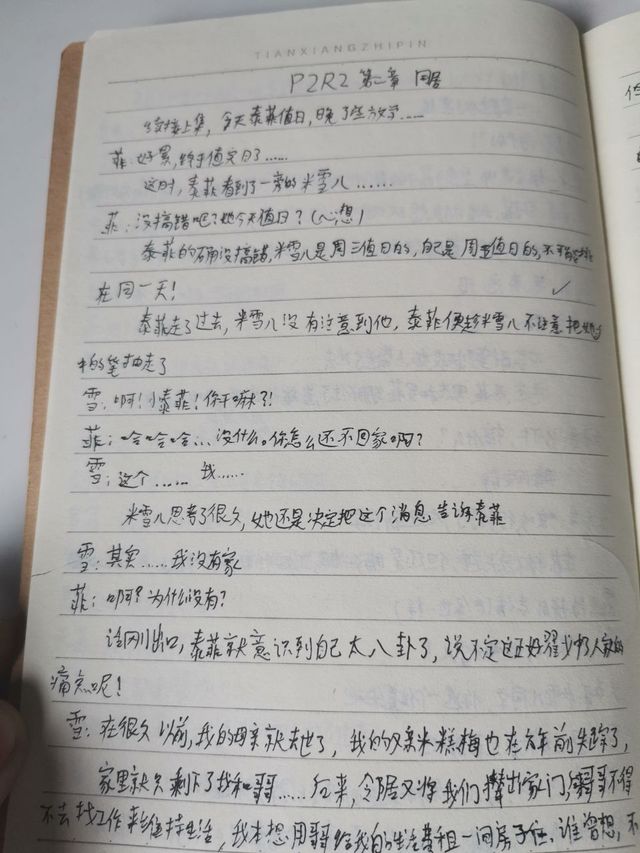 TIANXIANGZHIPIN
P2R2 第二章 同居
接上集，今天泰菲值日，晚了些放学……
菲：好累，终于值完日了……
这时，泰菲看到了一旁的米雪儿……
菲：没搞错吧？她今天值日？（心想）
泰菲的确没搞错，米雪儿是周三值日的，自己是周五值日的，不可能
在同一天！
泰菲走了过去，米雪儿没有注意到他，泰菲便趁米雪儿不注意把她
的笔抽走了
雪：啊！小泰菲！你干嘛？！
菲：哈哈哈…没什么。你怎么还不回家啊？
雪：这个……我……
米雪儿思考了很久，她还是决定把这个消息告诉泰菲
雪：其实……我没有家
菲：啊？为什么没有？
话刚出口，泰菲就意识到自己太八卦了，说不定这正好戳中了人家的
痛点呢！
雪：在很久以前，我的母亲就去世了，我的父亲米糕梅也在六年前失踪了，
家里就只剩下了我和哥哥……后来，邻居又将我们撵出家门，哥哥不得
不去找工作来维持生活，我本想用哥哥给我的生活费租一间房子住，谁曾想，不